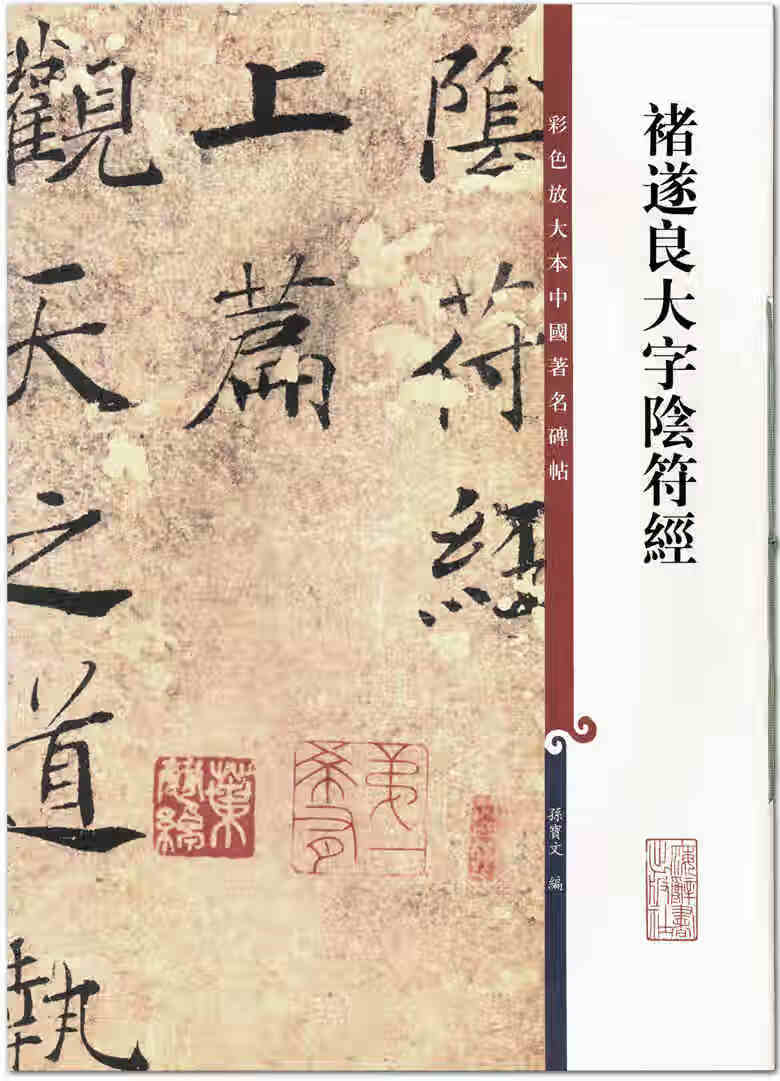 褚遂良大字陰符經
彩色放大本中國著名碑帖
孫寶文 編
上海辭書出版社
陰符經
上篇
觀天之道執